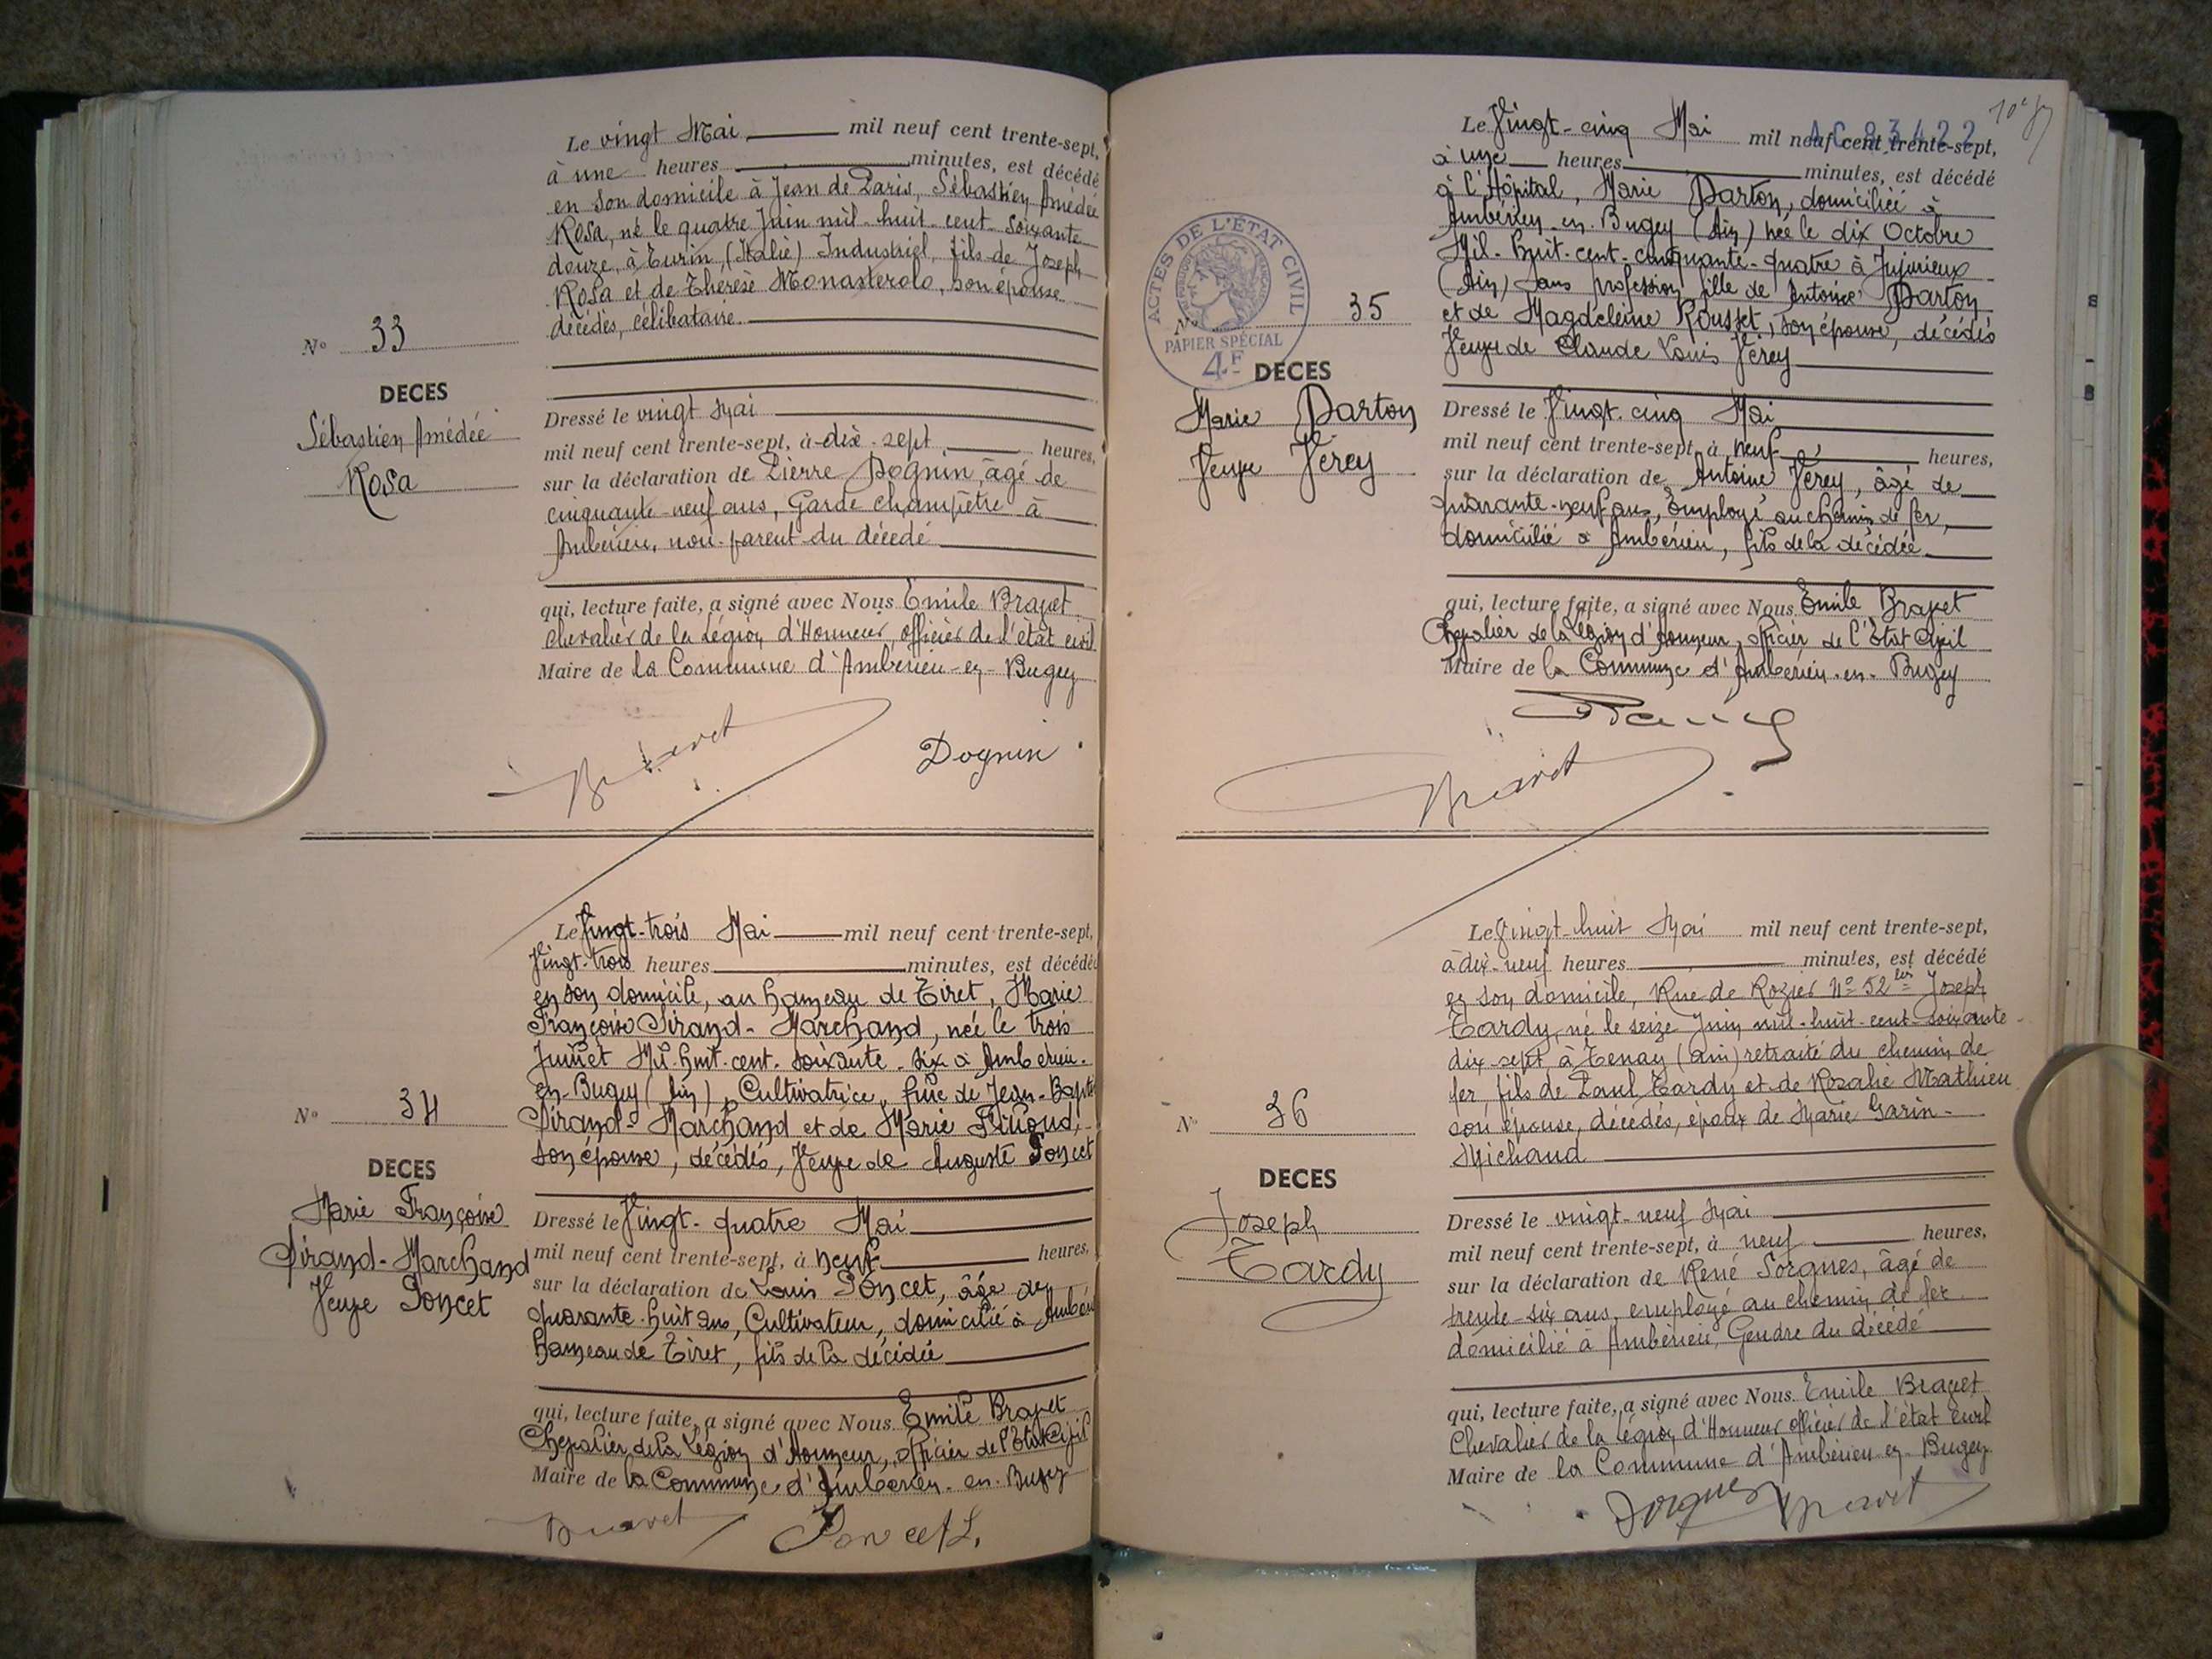 Le vingt Mai mil neuf cent trente-sept,
à une heures minutes, est décédé
en son domicile à Jean de Paris, Sébastien Amédée
Rosa, né le quatre Juin mil-huit-cent-soixante
douze, à Turin (Italie) Industriel, fils de Joseph
Rosa et de Thérèse Monasterolo, son épouse
décédés, célibataire.
N° 33
DECES
Sébastien Amédée
Rosa
Dressé le vingt Mai
mil neuf cent trente-sept, à dix-sept heures,
sur la déclaration de Pierre Dognin, âgé de
cinquante-neuf ans, Garde champêtre à
Ambérieu, non-parent du décédé
qui, lecture faite, a signé avec Nous Emile Bravet
chevalier de la Légion d'Honneur, officier de l'état civil
Maire de la Commune d'Ambérieu-en-Bugey
Bravet
Dognin
Le Vingt-trois Mai mil neuf cent trente-sept,
Vingt-trois heures minutes, est décédée
en son domicile, au hameau de Tiret, Marie
Françoise Sirand-Marchand, née le trois
Juillet Mil-huit-cent-soixante-six à Ambérieu-
en-Bugey (Ain), Cultivatrice, fille de Jean-Baptis
Sirand-Marchand et de Marie
son épouse, décédés, Veuve de Auguste Poncet
N° 34
DECES
Marie Françoise
Sirand-Marchand
Veuve Poncet
Dressé le Vingt-quatre Mai
mil neuf cent trente-sept, à neuf heures,
sur la déclaration de Louis Poncet, âgé de
quarante-huit ans, Cultivateur, domicilié à Ambéri
hameau de Tiret, fils de la décédée
qui, lecture faite, a signé avec Nous Emile Bravet
Chevalier de la Légion d'Honneur, officier de l'Etat Civil
Maire de la Commune d'Ambérieu-en-Bugey
Bravet
Poncet L.
AC 83422
Le Vingt-cinq Mai mil neuf cent trente-sept,
à une heures minutes, est décédé
à l'Hôpital, Marie Darton, domiciliée à
Ambérieu-en-Bugey (Ain) née le dix Octobre
Mil-huit-cent-cinquante-quatre à Jujurieux
(Ain) sans profession fille de Antoine Darton
et de Magdeleine Rousset, son épouse, décédés
Veuve de Claude Louis Vérey
ACTES DE L'ÉTAT CIVIL
PAPIER SPÉCIAL
4F
N° 35
DECES
Marie Darton
Veuve Vérey
Dressé le Vingt-cinq Mai
mil neuf cent trente-sept, à neuf heures,
sur la déclaration de Antoine Vérey, âgé de
quarante-neuf ans, Employé au chemin de fer,
domicilié à Ambérieu, fils de la décédée
qui, lecture faite, a signé avec Nous Emile Bravet
Chevalier de la Légion d'Honneur, officier de l'Etat Civil
Maire de la Commune d'Ambérieu-en-Bugey
Bravet
Le vingt-huit Mai mil neuf cent trente-sept,
à dix-neuf heures minutes, est décédé
en son domicile, Rue de Rozier N° 52 ter Joseph
Tardy, né le seize Juin mil-huit-cent-soixante-
dix-sept, à Tenay (Ain) retraité du chemin de
fer, fils de Paul Tardy et de Rosalie Mathieu
son épouse, décédés, époux de Marie Garin-
Michaud
N° 36
DECES
Joseph
Tardy
Dressé le vingt-neuf Mai
mil neuf cent trente-sept, à neuf heures,
sur la déclaration de René Sorgues, âgé de
trente-six ans, employé au chemin de fer
domicilié à Ambérieu, Gendre du décédé
qui, lecture faite, a signé avec Nous Emile Bravet
Chevalier de la Légion d'Honneur officier de l'état civil
Maire de la Commune d'Ambérieu-en-Bugey
Sorgues Bravet